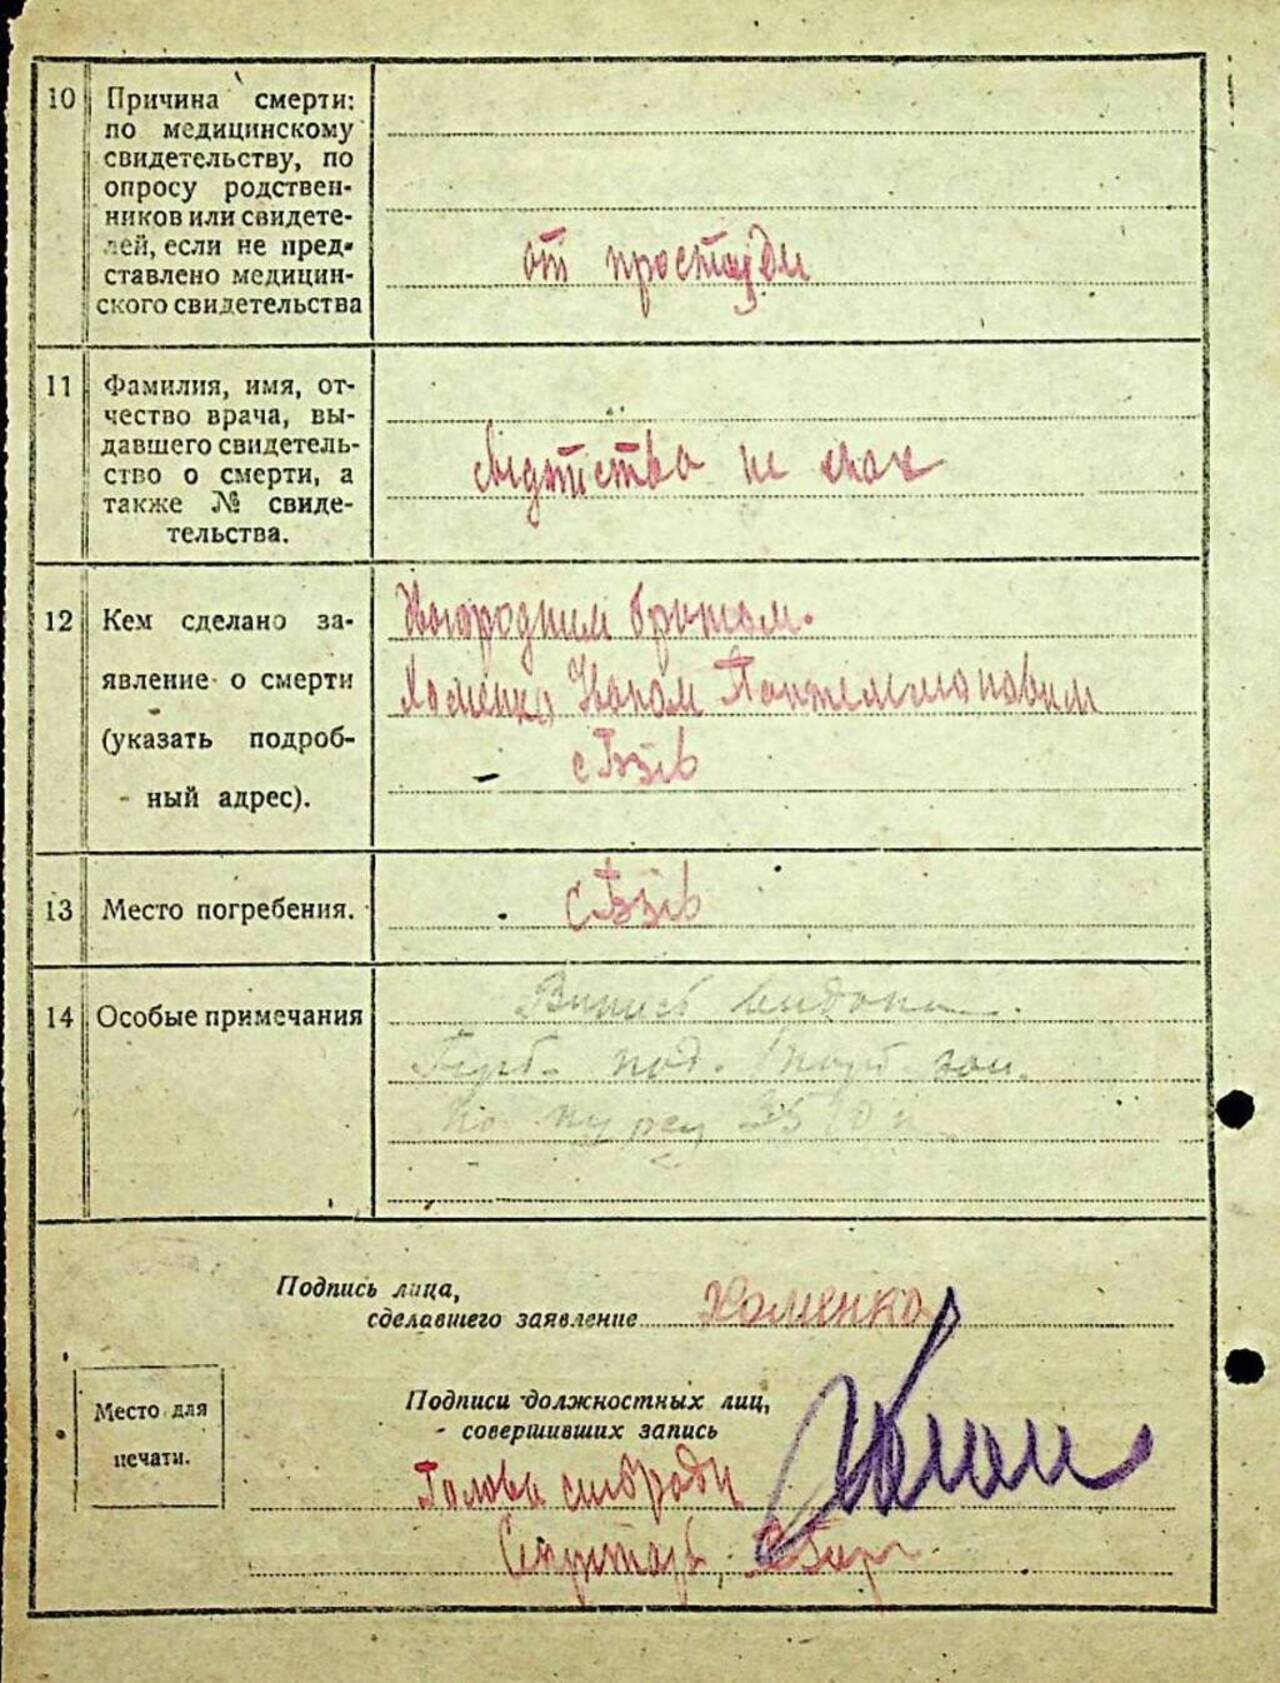 10 Причина смерти:
по медицинскому
свидетельству, по
опросу родствен-
ников или свидете-
лей, если не пред-
ставлено медицин-
ского свидетельства
от простуди
11 Фамилия, имя, от-
чество врача, вы-
давшего свидетель-
ство о смерти, а
также № свиде-
тельства.
не мах
12 Кем сделано за-
явление о смерти
(указать подроб-
ный адрес).
братом.
Хоменко Иваном Пантелимоновим
с
13 Место погребения.
с
14 Особые примечания
Подпись лица,
сделавшего заявление Хоменко
Место для
печати.
Подписи должностных лиц,
совершивших запись
Голова сільради
Секретарь